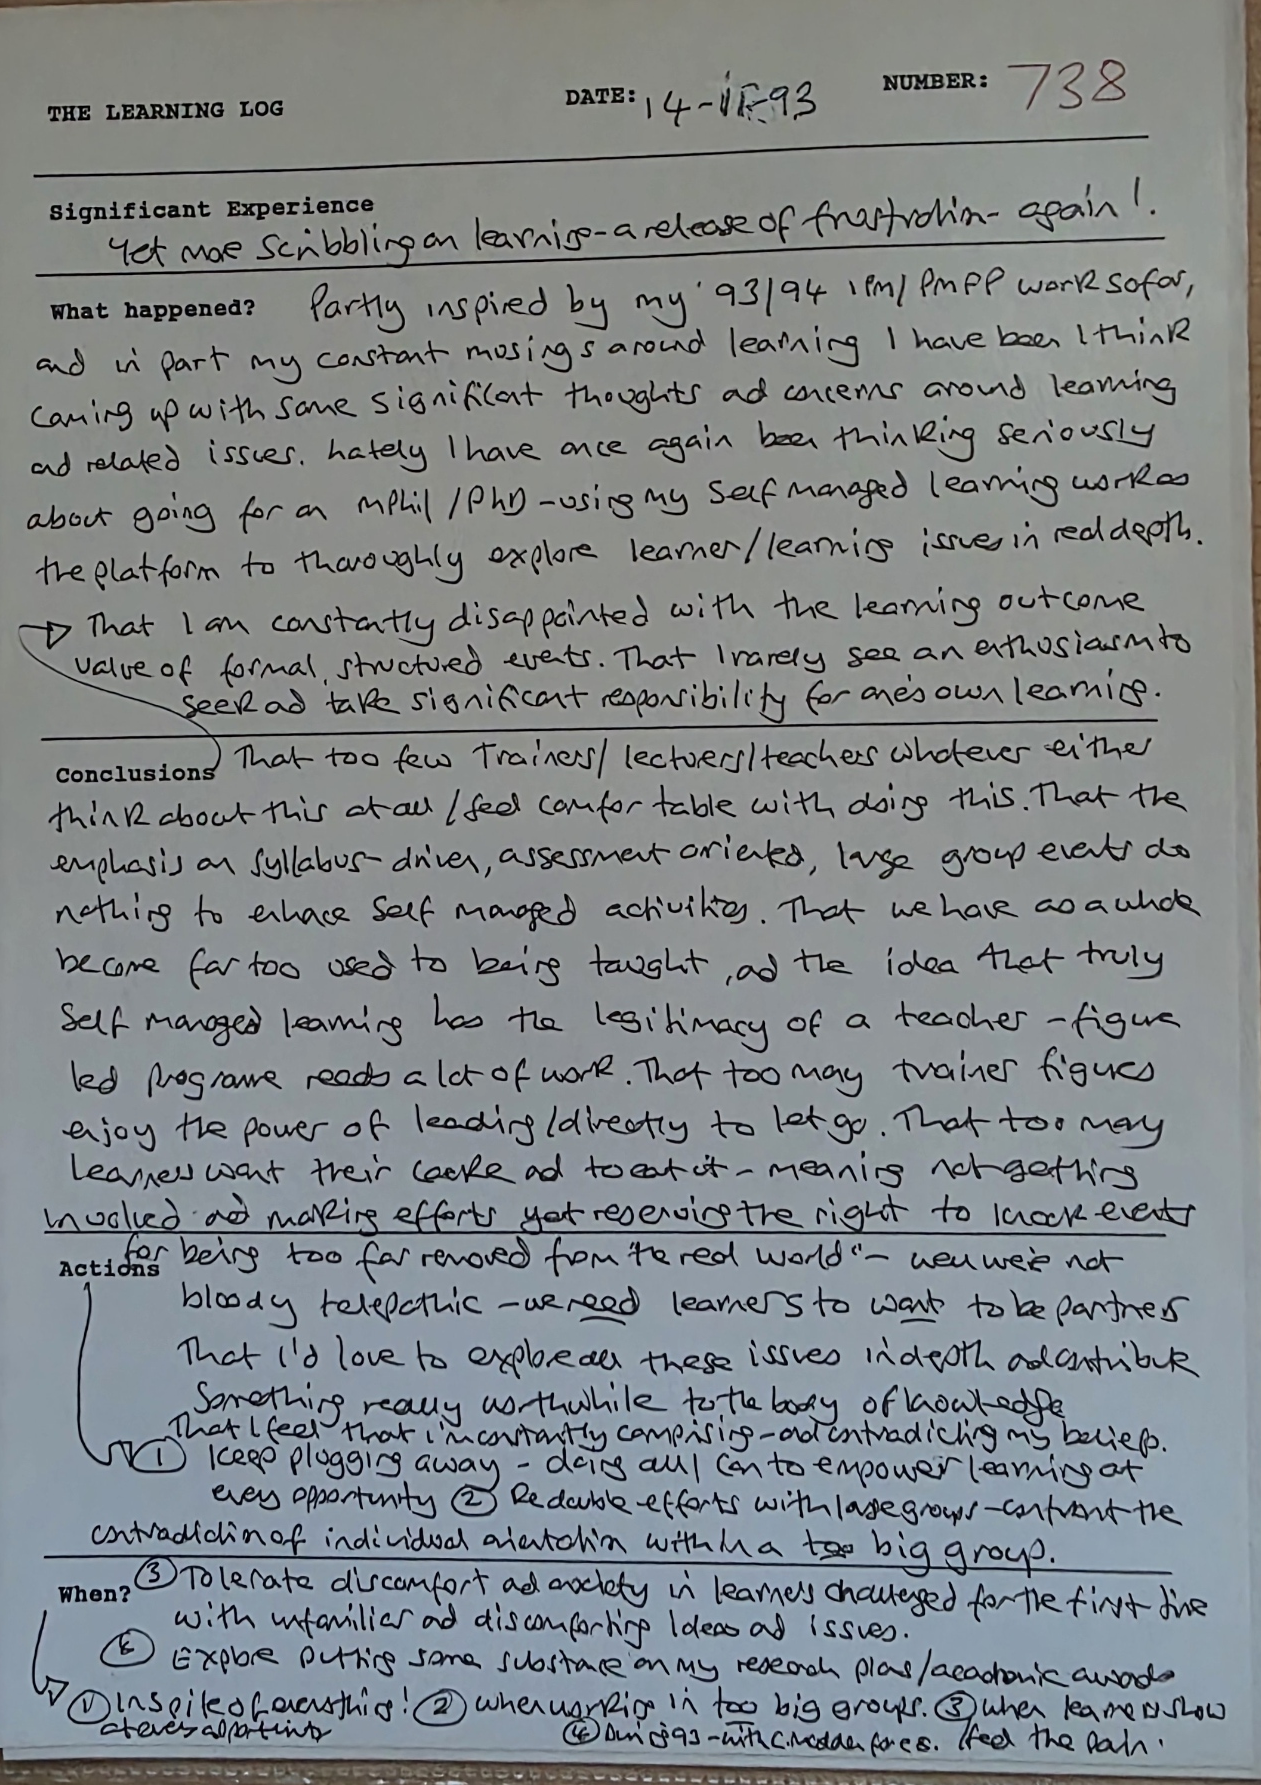 THE LEARNING LOG DATE: 14-11-93 NUMBER: 738
Significant Experience
Yet more scribbling on learning - a release of frustration - again!.
What happened? Partly inspired by my '93/94 IPM/PMFP work so far,
and in part my constant musings around learning I have been I think
coming up with some significant thoughts and concerns around learning
and related issues. Lately I have once again been thinking seriously
about going for an MPhil/PhD - using my Self Managed Learning work as
the platform to thoroughly explore learner/learning issues in real depth.
→ That I am constantly disappointed with the learning outcome
value of formal, structured events. That I rarely see an enthusiasm to
seek and take significant responsibility for one's own learning.
Conclusions That too few Trainers/lecturers/teachers whatever either
think about this at all / feel comfortable with doing this. That the
emphasis on syllabus-driven, assessment oriented, large group events do
nothing to enhance Self managed activities. That we have as a whole
become far too used to being taught, and the idea that truly
Self managed learning has the legitimacy of a teacher-figure
led programme needs a lot of work. That too many trainer figures
enjoy the power of leading/directly to let go. That too many
learners want their cake and to eat it - meaning not getting
involved and making efforts yet reserving the right to knock events
for being too far removed from "the real world" - well we're not
Actions
bloody telepathic - we need learners to want to be partners
That I'd love to explore all these issues in depth and contribute
Something really worthwhile to the body of knowledge
That I feel that I'm constantly compromising - and contradicting my beliefs.
① Keep plugging away - doing all I can to empower learning at
every opportunity ② Redouble efforts with large groups - confront the
contradiction of individual orientation within a too big group.
When? ③ Tolerate discomfort and anxiety in learners challenged for the first time
with unfamiliar and discomforting ideas and issues.
Explore putting some substance on my research plans/academic awards
① In spite of everything! ② When working in too big groups. ③ when learners show
at every opportunity ④ During 93 - with C. Madden for es. /feel the pain.